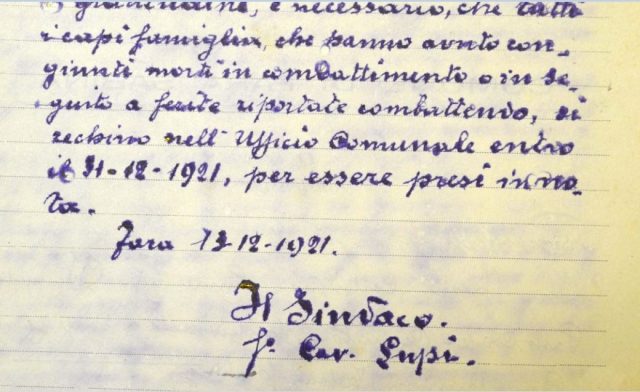 è necessario, che tutti
i capi famiglia, che hanno avuto con-
giunti morti in combattimento o in se-
guito a ferite riportate combattendo, si
rechino nell'Ufficio Comunale entro
il 31-12-1921, per essere presi in no-
ta.
Fara 13-12-1921.
Il Sindaco.
f° Cav. Lupi.